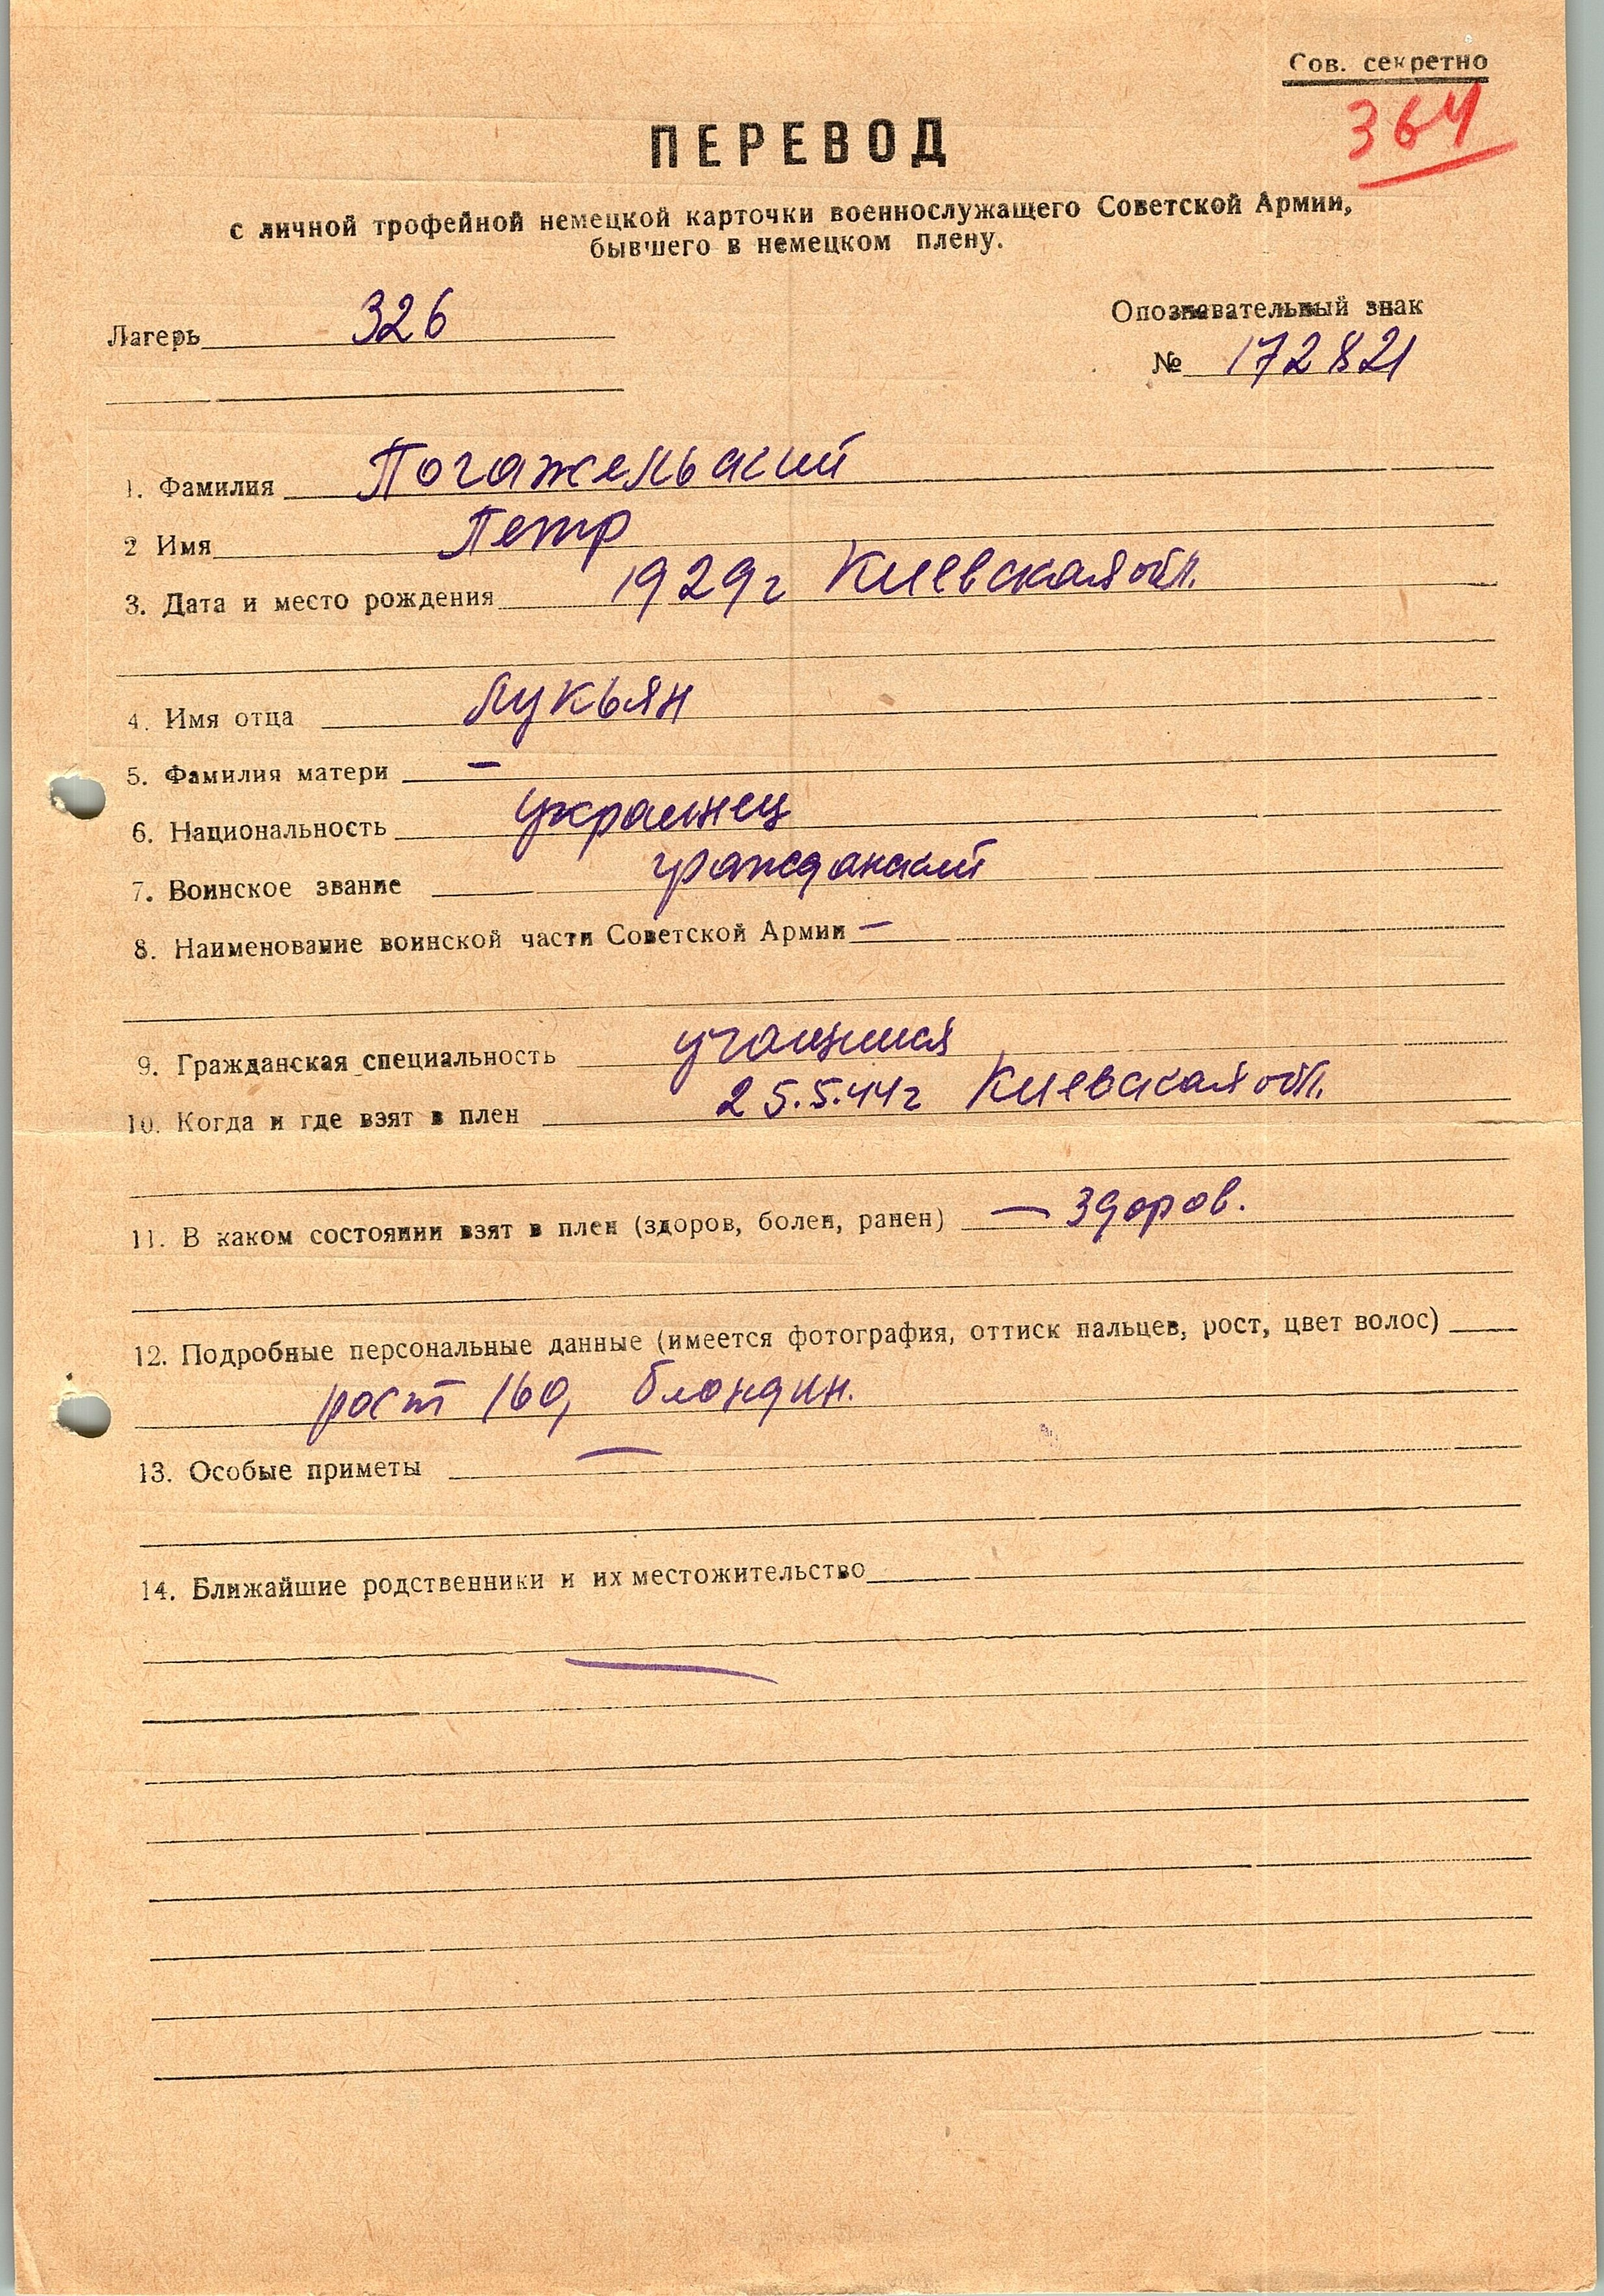 Сов. секретно
364
ПЕРЕВОД
с личной трофейной немецкой карточки военнослужащего Советской Армии,
бывшего в немецком плену.
Лагерь 326
Опознавательный знак
№ 172821
1. Фамилия Погажельский
2 Имя Петр
3. Дата и место рождения 1929г Киевская обл.
4. Имя отца Лукьян
5. Фамилия матери —
6. Национальность украинец
7. Воинское звание гражданский
8. Наименование воинской части Советской Армии —
9. Гражданская специальность учащийся
10. Когда и где взят в плен 25.5.44г Киевская обл.
11. В каком состоянии взят в плен (здоров, болен, ранен) — здоров.
12. Подробные персональные данные (имеется фотография, оттиск пальцев, рост, цвет волос)
рост 160, блондин.
13. Особые приметы —
14. Ближайшие родственники и их местожительство
—